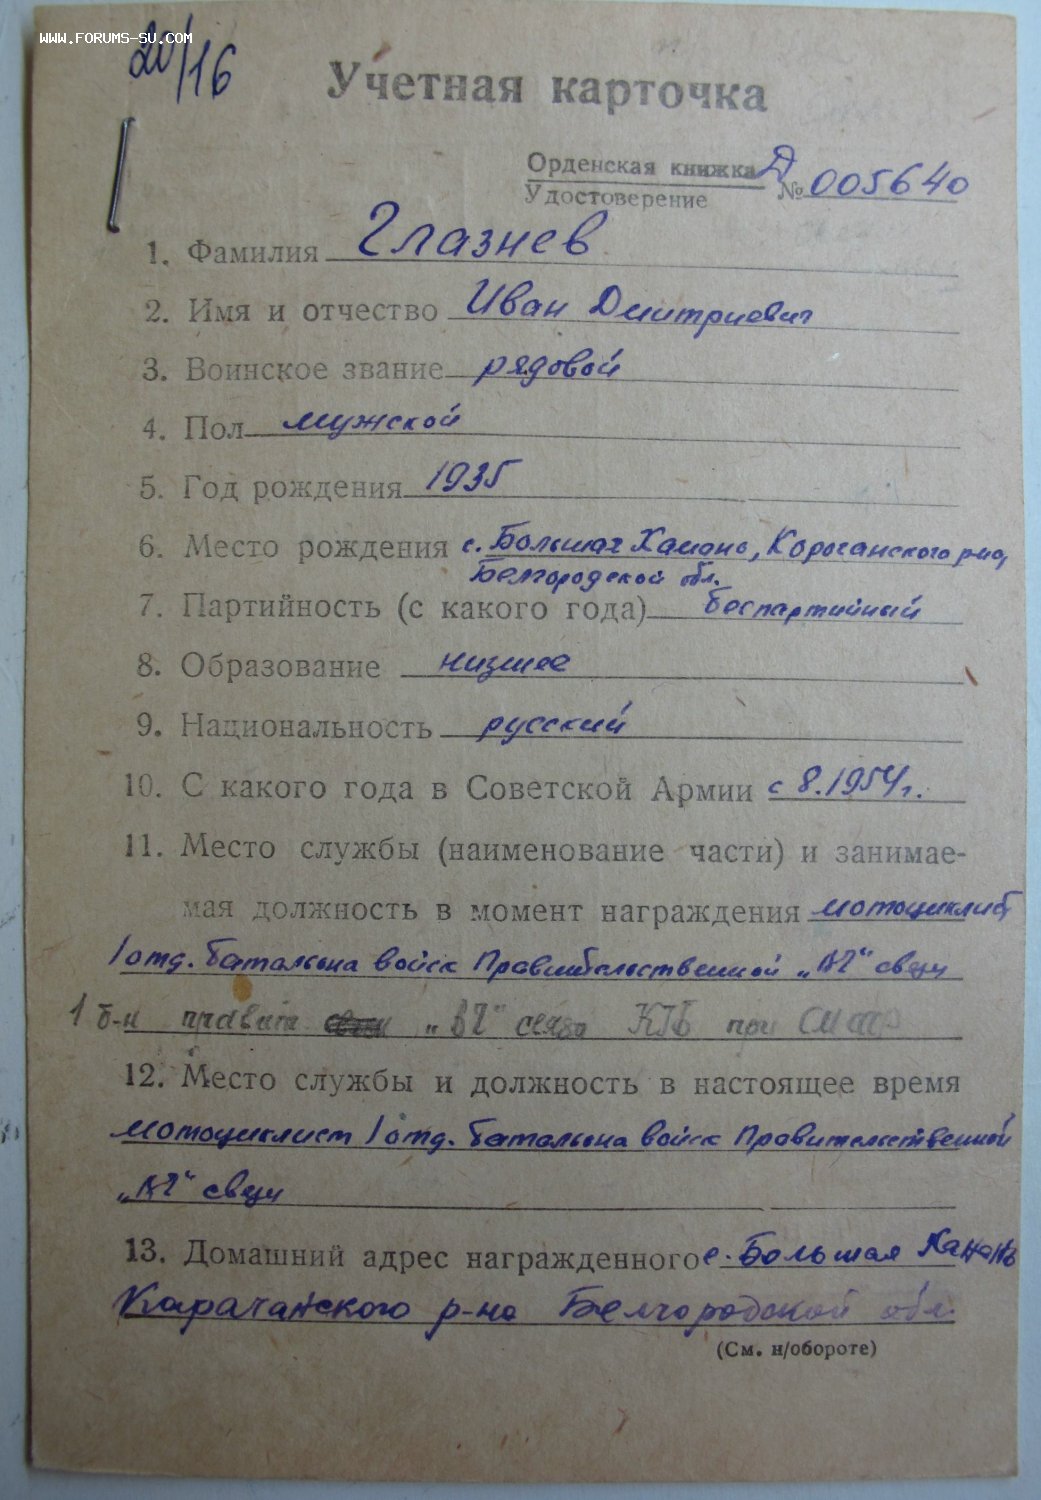 WWW.FORUMS-SU.COM
20/16
Учетная карточка
Орденская книжка А
Удостоверение № 005640
1. Фамилия Глазнев
2. Имя и отчество Иван Дмитриевич
3. Воинское звание рядовой
4. Пол мужской
5. Год рождения 1935
6. Место рождения с. Большая Халань, Корочанского р-на,
Белгородской обл.
7. Партийность (с какого года) беспартийный
8. Образование низшее
9. Национальность русский
10. С какого года в Советской Армии с 8.1954г.
11. Место службы (наименование части) и занимае-
мая должность в момент награждения мотоциклист
1 отд. батальона войск Правительственной „ВЧ“ связи
1 б-н правит „ВЧ“ связи КГБ при СМ
12. Место службы и должность в настоящее время
мотоциклист 1 отд. батальона войск Правительственной
„ВЧ“ связи
13. Домашний адрес награжденного с. Большая
р-на Белгородской обл.
(См. н/обороте)